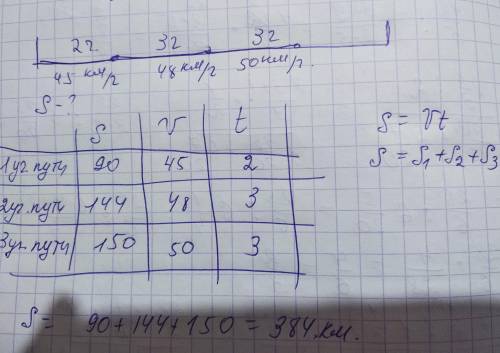 2ч 3ч 3ч
45 км/г 48 км/г 50 км/г.
S - ?
S V t
1 уч. пути 90 45 2
2 уч. пути 144 48 3
3 уч. пути 150 50 3
S = Vt
S = S₁ + S₂ + S₃
S = 90 + 144 + 150 = 384 км.